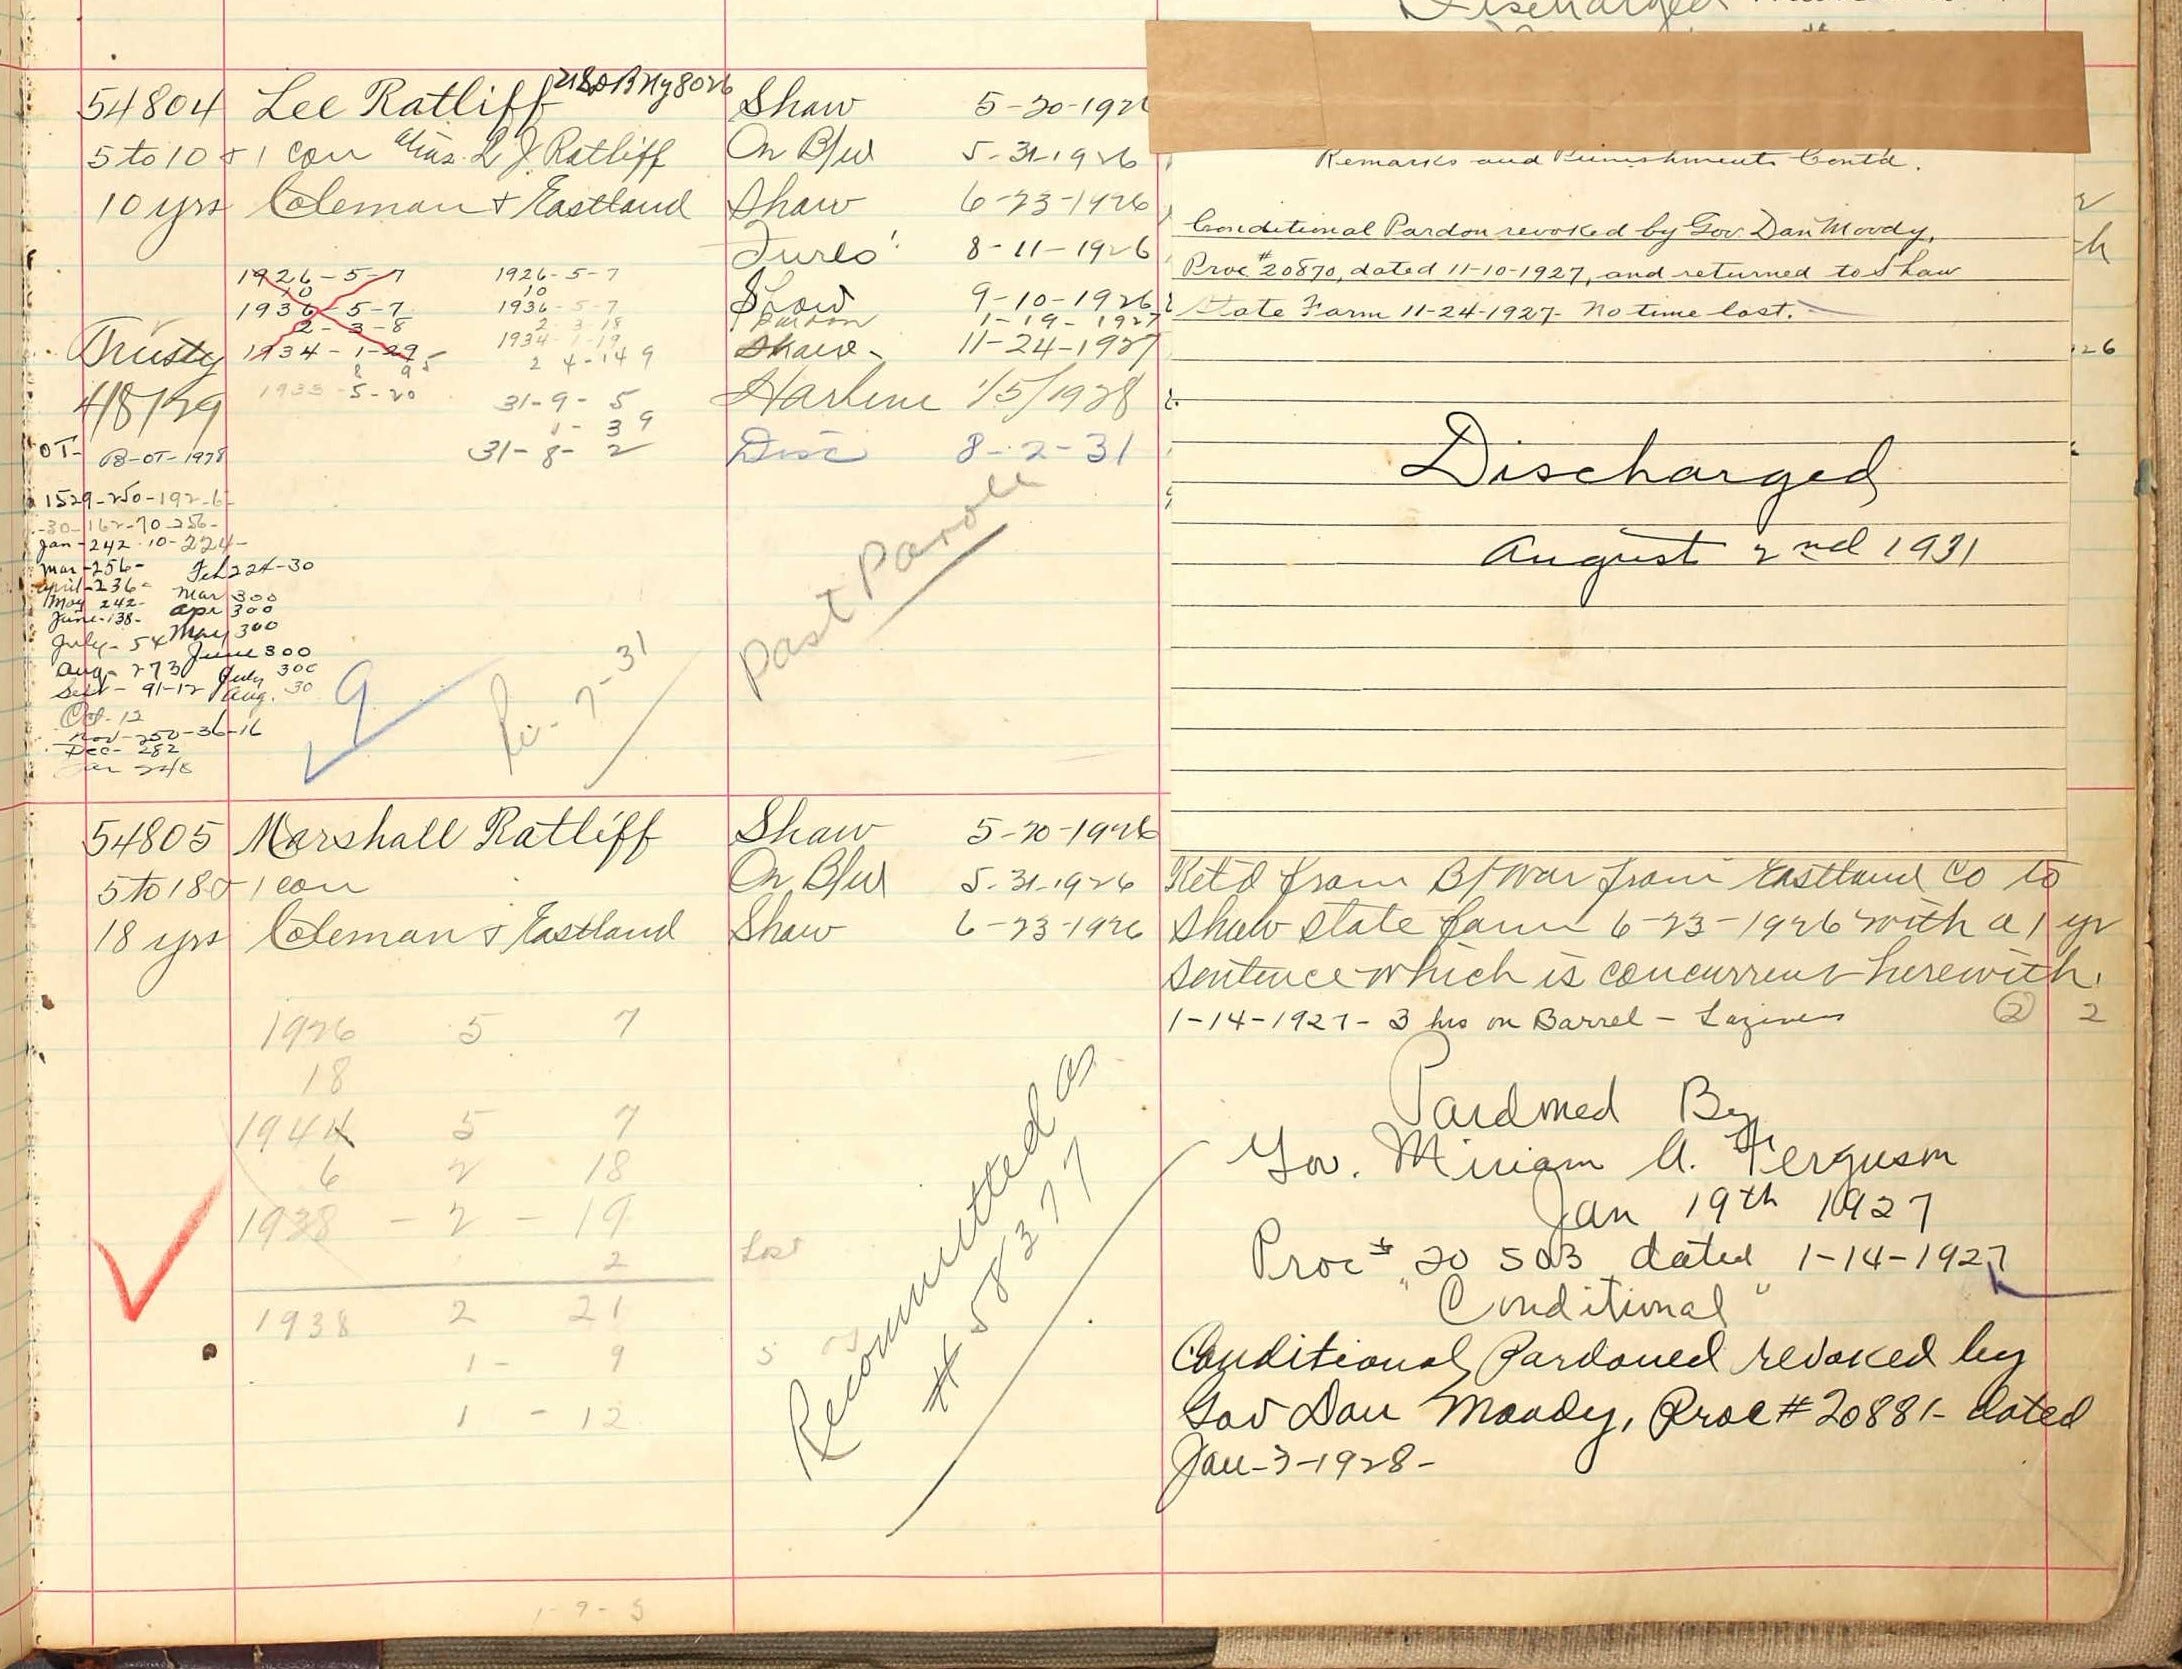 Discharged
54804 Lee Ratliff Shaw 5-20-1926
5 to 10 & 1 con alias L J Ratliff On B/W 5-31-1926
10 yrs Coleman & Eastland Shaw 6-23-1926
Furlo 8-11-1926
Shaw 9-10-1926
Pardon 1-19-1927
Shaw 11-24-1927
Harlem 1/5/1928
Disc 8-2-31
Past Parole
1926-5-7
10
1936-5-7
2-3-8
1934-1-29
8 9
1933-5-20
1926-5-7
10
1936-5-7
2 3-18
1934-1-19
2 4-14 9
31-9-5
1-3 9
31-8-2
Trusty
4/8/29
OT-
1529-250-192-6-
-30-162-70-256-
Jan-242-10-224-
Mar-256- Feb 224-30
April-236- Mar 300
May 242- Apr 300
June-138- May 300
July-54 June 300
Aug-273 July 300
Sept-91-12 Aug. 30
Oct-12
Nov-250-36-16
Dec-282
9
7-31
Remarks and Punishments Cont'd.
Conditional Pardon revoked by Gov. Dan Moody,
Proc #20870, dated 11-10-1927, and returned to Shaw
State Farm 11-24-1927- No time lost.
Discharged
August 2nd 1931
54805 Marshall Ratliff Shaw 5-20-1926
5 to 18 & 1 con On B/W 5-31-1926
18 yrs Coleman & Eastland Shaw 6-23-1926
1926 5 7
18
1944 5 7
6 2 18
1938 - 2 - 19
2 Lost
1938 2 21
1- 9
1 - 12
1-9-3
Recommitted as
# 58377
Ret'd from B/War from Eastland Co to
Shaw State farm 6-23-1926 with a 1 yr
sentence which is concurrent herewith.
1-14-1927- 3 hrs on Barrel - Laziness 2 2
Pardoned By
Gov. Miriam A. Ferguson
Jan 19th 1927
Proc # 20503 dated 1-14-1927
"Conditional"
Conditional Pardoned revoked by
Gov Dan Moody, Proc # 20881- dated
Jan-3-1928-